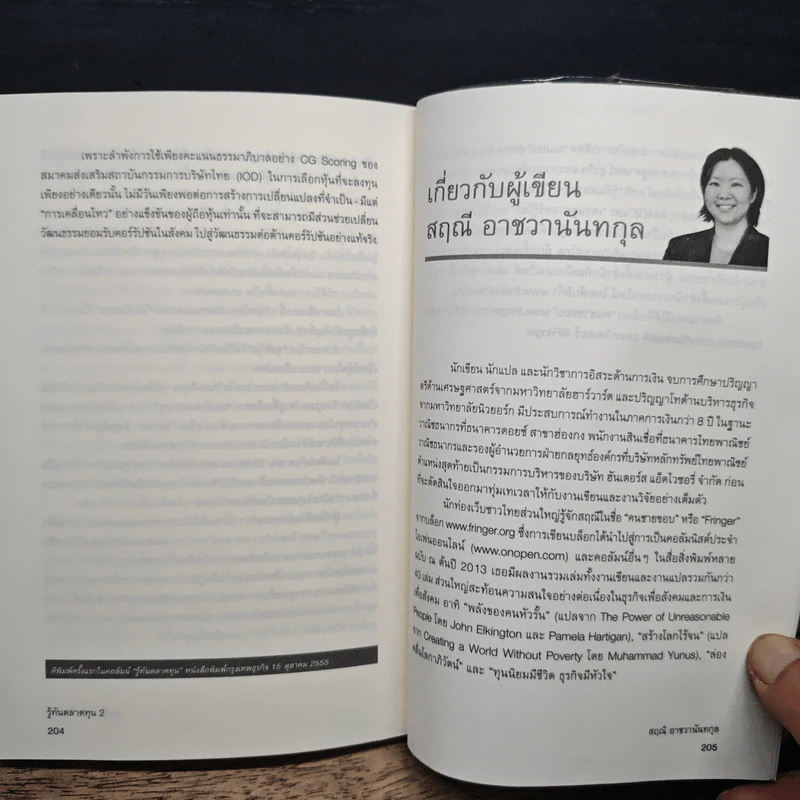 เพราะลำพังการใช้เพียงคะแนนธรรมาภิบาลอย่าง CG Scoring ของ
สมาคมส่งเสริมสถาบันกรรมการบริษัทไทย (IOD) ในการเลือกหุ้นที่จะลงทุน
เพียงอย่างเดียวนั้น ไม่มีวันเพียงพอต่อการสร้างการเปลี่ยนแปลงที่จำเป็น - มีแต่
“การเคลื่อนไหว” อย่างแข็งขันของผู้ถือหุ้นเท่านั้น ที่จะสามารถมีส่วนช่วยเปลี่ยน
วัฒนธรรมยอมรับคอร์รัปชันในสังคม ไปสู่วัฒนธรรมต่อต้านคอร์รัปชันอย่างแท้จริง
ตีพิมพ์ครั้งแรกในคอลัมน์ “รู้ทันตลาดทุน” หนังสือพิมพ์กรุงเทพธุรกิจ 15 ตุลาคม 2555
รู้ทันตลาดทุน 2
204
เกี่ยวกับผู้เขียน
สฤณี อาชวานันทกุล
นักเขียน นักแปล และนักวิชาการอิสระด้านการเงิน จบการศึกษาปริญญา
ตรีด้านเศรษฐศาสตร์จากมหาวิทยาลัยฮาร์วาร์ด และปริญญาโทด้านบริหารธุรกิจ
จากมหาวิทยาลัยนิวยอร์ก มีประสบการณ์ทำงานในภาคการเงินกว่า 8 ปี ในฐานะ
วาณิชธนากรที่ธนาคารดอยช์ สาขาฮ่องกง พนักงานสินเชื่อที่ธนาคารไทยพาณิชย์
วาณิชธนากรและรองผู้อำนวยการฝ่ายกลยุทธ์องค์กรที่บริษัทหลักทรัพย์ไทยพาณิชย์
ตำแหน่งสุดท้ายเป็นกรรมการบริหารของบริษัท ฮันเตอร์ส แอ็ดไวซอรี่ จำกัด ก่อน
ที่จะตัดสินใจออกมาทุ่มเทเวลาให้กับงานเขียนและงานวิจัยอย่างเต็มตัว
นักท่องเว็บชาวไทยส่วนใหญ่รู้จักสฤณีในชื่อ “คนชายขอบ” หรือ “Fringer”
จากบล็อก www.fringer.org ซึ่งการเขียนบล็อกได้นำไปสู่การเป็นคอลัมนิสต์ประจำ
โอเพ่นออนไลน์ (www.onopen.com) และคอลัมน์อื่นๆ ในสื่อสิ่งพิมพ์หลาย
ฉบับ ณ ต้นปี 2013 เธอมีผลงานรวมเล่มทั้งงานเขียนและงานแปลรวมกันกว่า
40 เล่ม ส่วนใหญ่สะท้อนความสนใจอย่างต่อเนื่องในธุรกิจเพื่อสังคมและการเงิน
เพื่อสังคม อาทิ “พลังของคนหัวรั้น” (แปลจาก The Power of Unreasonable
People โดย John Elkington และ Pamela Hartigan), “สร้างโลกไร้จน” (แปล
จาก Creating a World Without Poverty โดย Muhammad Yunus), “ล่อง
คลื่นโลกาภิวัตน์” และ “ทุนนิยมมีชีวิต ธุรกิจมีหัวใจ”
สฤณี อาชวานันทกุล
205